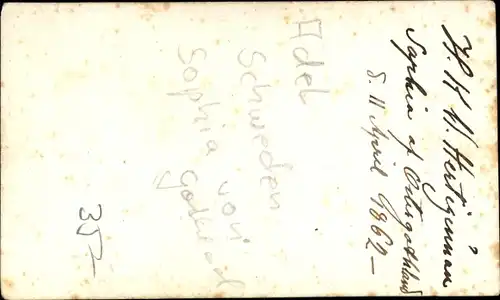 H. K. H. Hertiginnan
Sophia af Östergöthland
d. 11 April 1862 –
Adel
Schweden
Sophia von
Gotland
35,–